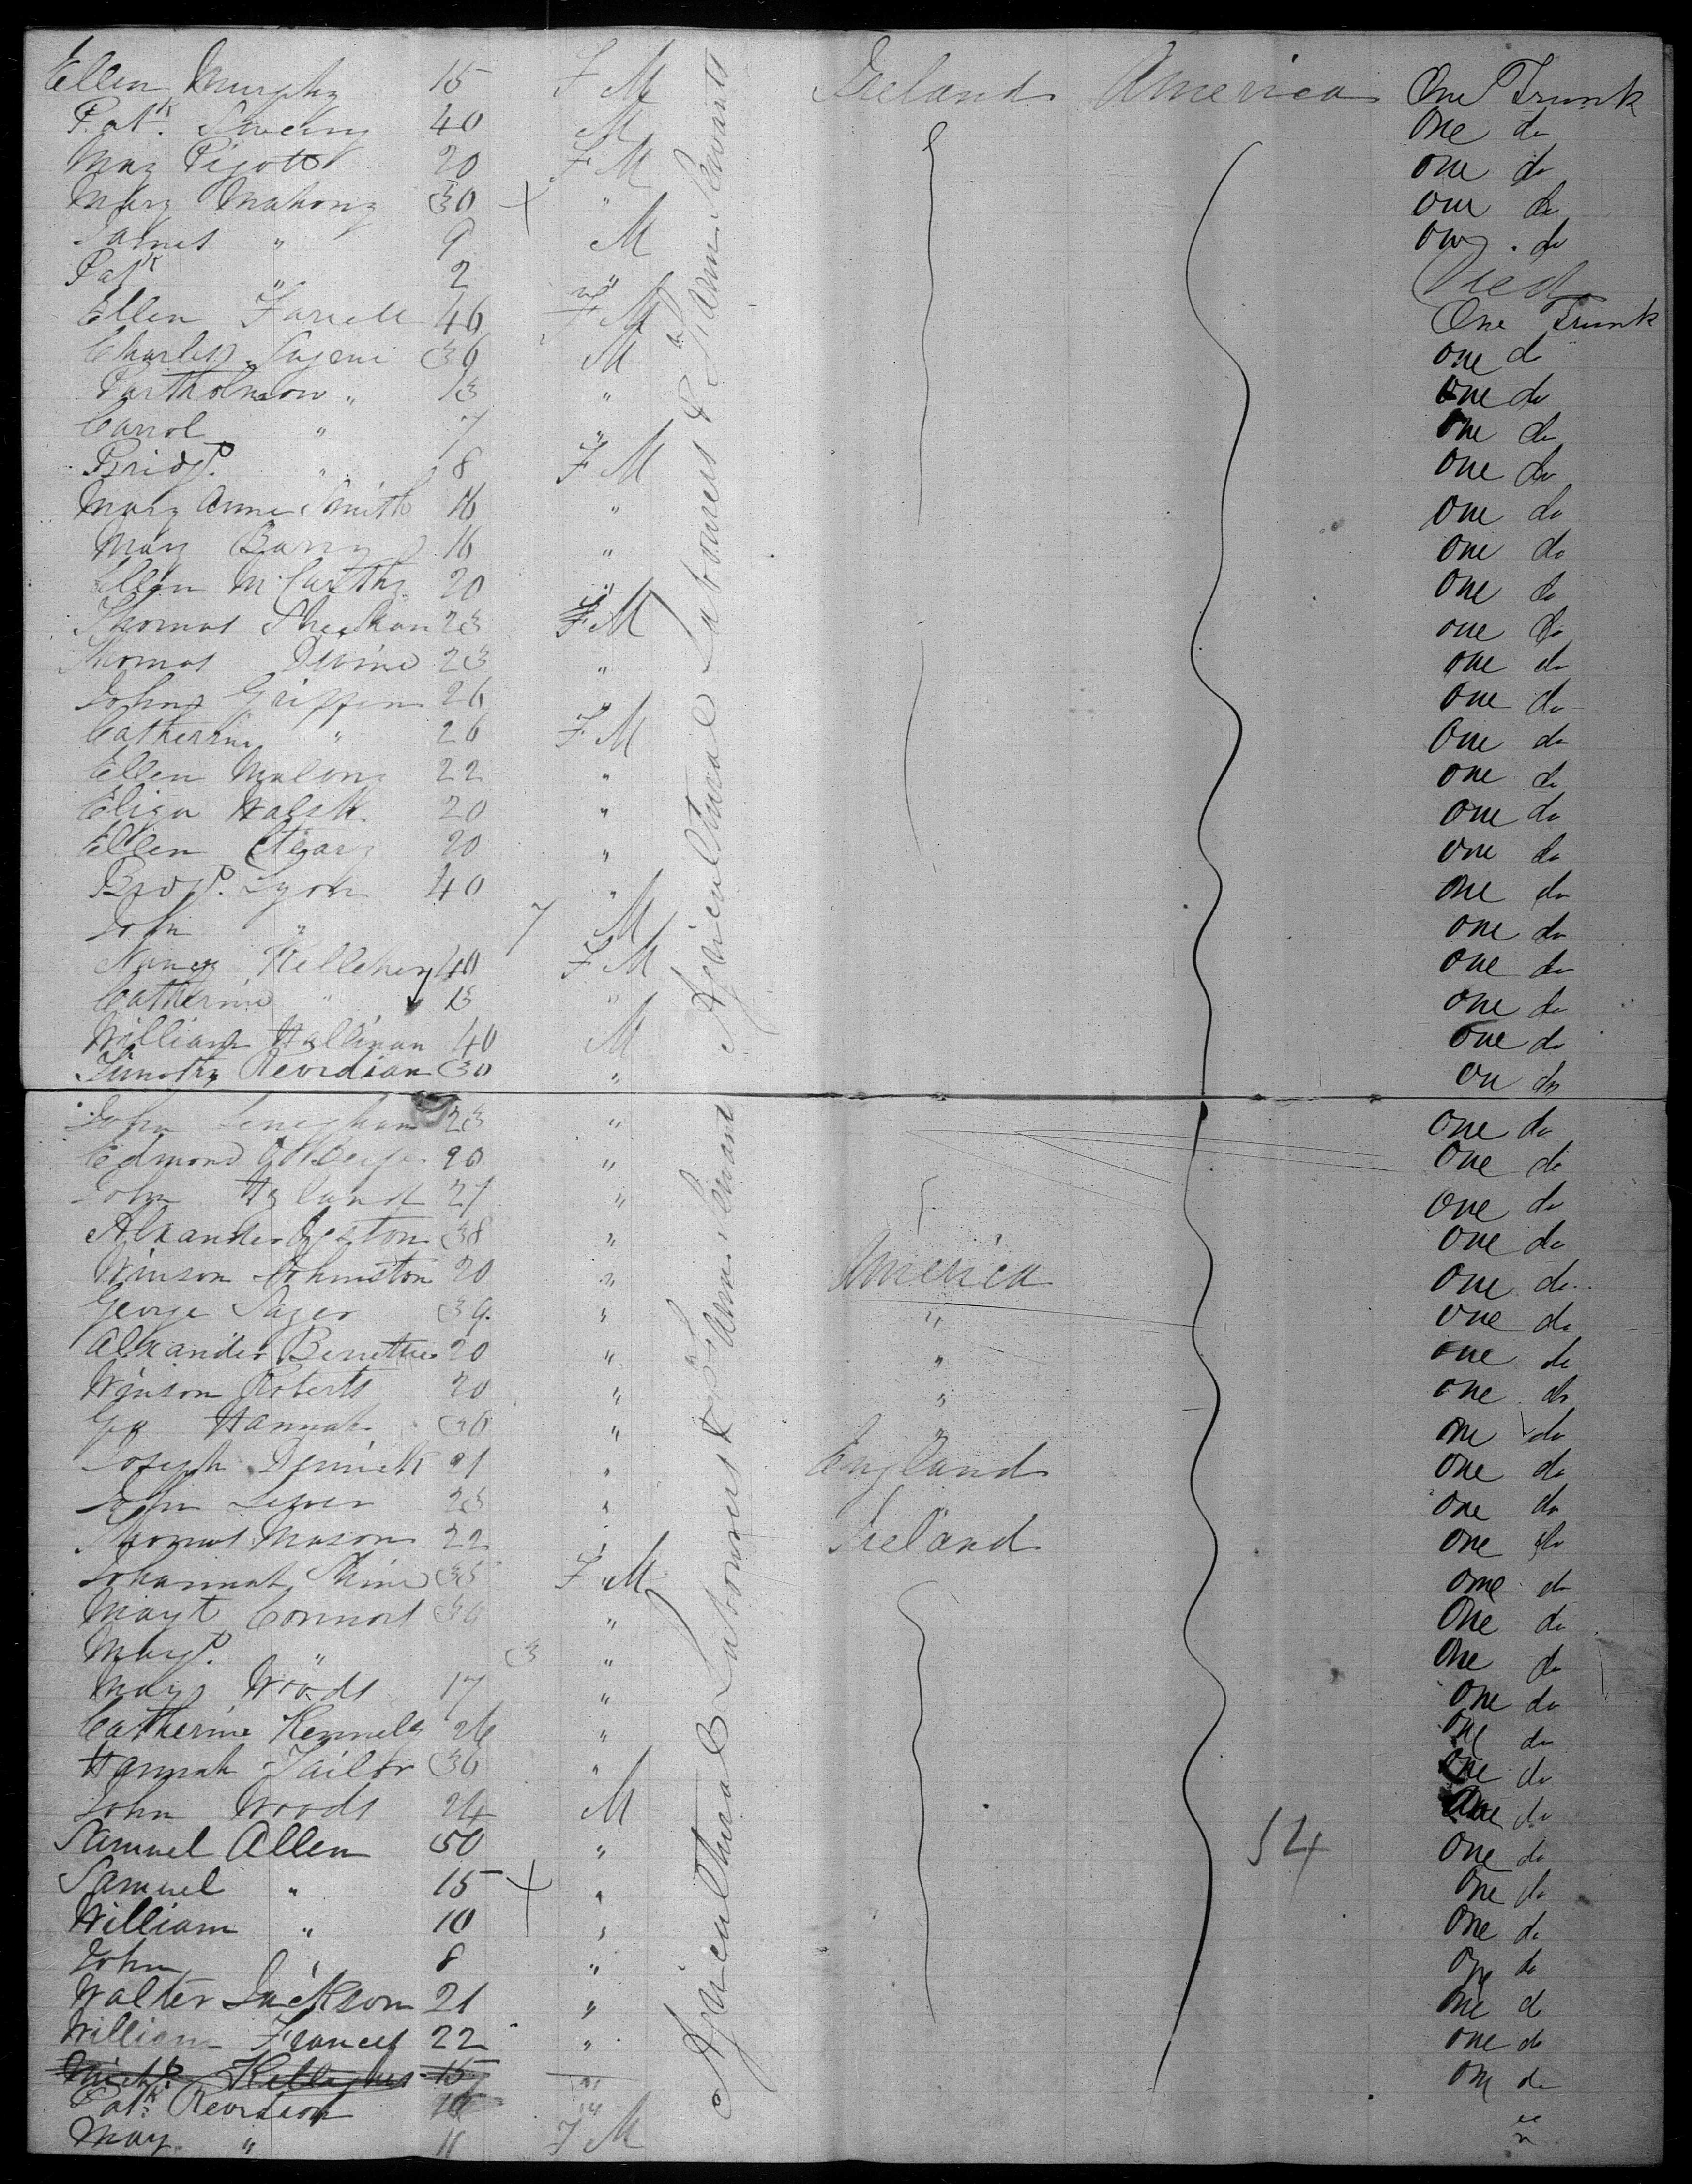 Ellen Murphy 15 F M Ireland America One Trunk
Patk. Sweeny 40 M One do
May Pigott 20 F M one do
Mary Mahony 30 " one do
James " 9 M one do
Patk " 2 " Died
Ellen Farrell 46 F M One Trunk
Charles 36 M one do
Bartholmew " 13 " one do
Carrol " 7 " One do
Bridgt. " 8 F M one do
Mary Anne Smith 16 " one do
Mary Barry 16 " one do
Ellen McCarthy 20 " one do
Thomas Sheehan 23 M one do
Thomas Devine 23 " one do
John Griffin 26 " one do
Catherine " 26 F M One do
Ellen Malony 22 " one do
Eliza Walsh 20 " one do
Ellen Cleary 20 " one do
Bridgt. Lyon 40 " one do
John " 7 M one do
Nancy Kelleher 40 F M one do
Catherine " 13 " one do
William Hallinan 40 M one do
Timothy Reordian 30 " on do
Agricultural Labourers & Farm Servants
John Leneghan 23 " one do
Edmond 20 " one do
John Hyland 27 " one do
Alxander 38 " one do
Winson Johnston 20 " America one do
George Sazer 39 " " one do
Alxander 20 " " one do
Winson Roberts 20 " " one do
Hannah 30 " " one do
Joseph 21 " England one do
John 23 " one do
Thomas Mason 22 " Ireland one do
Johannah Shine 35 F M one do
Mayt Connors 30 " One do
Mayt. " 3 " One do
Mary Woods 17 " one do
Catherine Kennely 26 " one do
Hannah Tailor 36 " one do
John Woods 24 M one do
Samuel Allen 50 " 54 one do
Samuel " 15 " one do
William " 10 " one do
John " 8 " one do
Walter Jackson 21 " one do
William Frances 22 " one do
Michl. Kellegher 15 " one do
Patk. Reordion 10 "
May " 11 F M "
Agricultural Labourers & Farm Servants